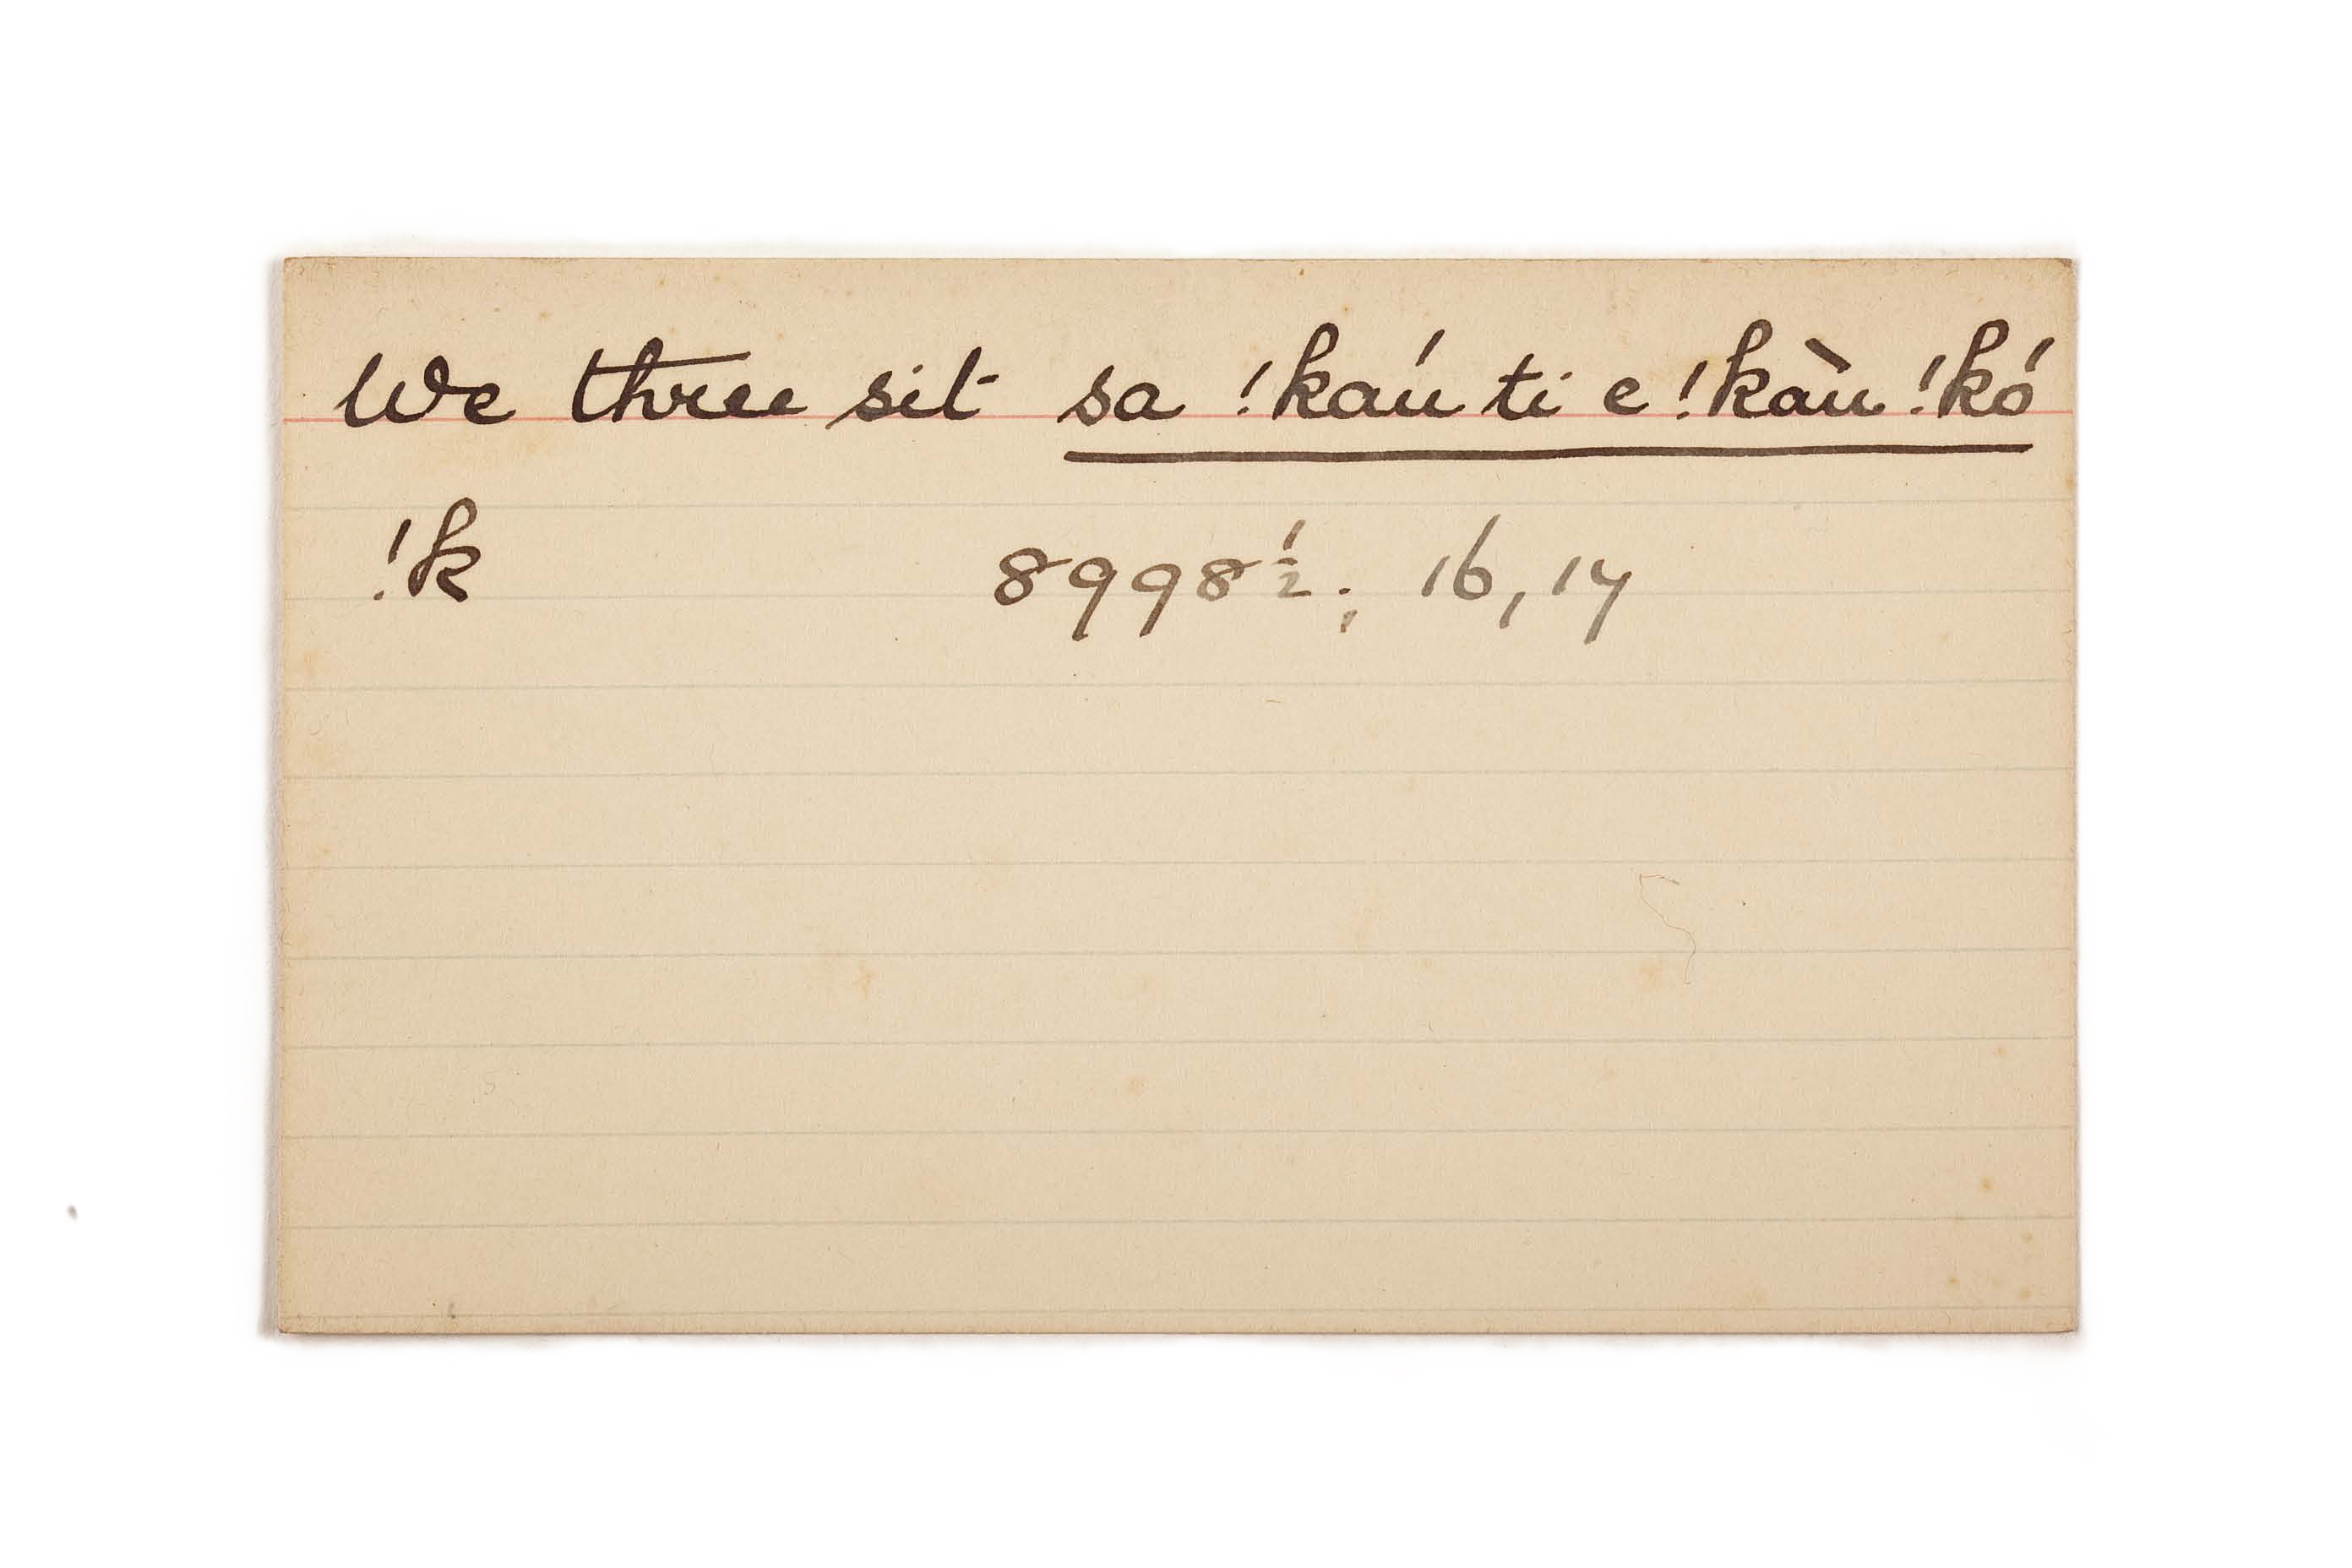 We three sit sa !kaú ti e !kàu !kó
!k 8998½; 16, 17